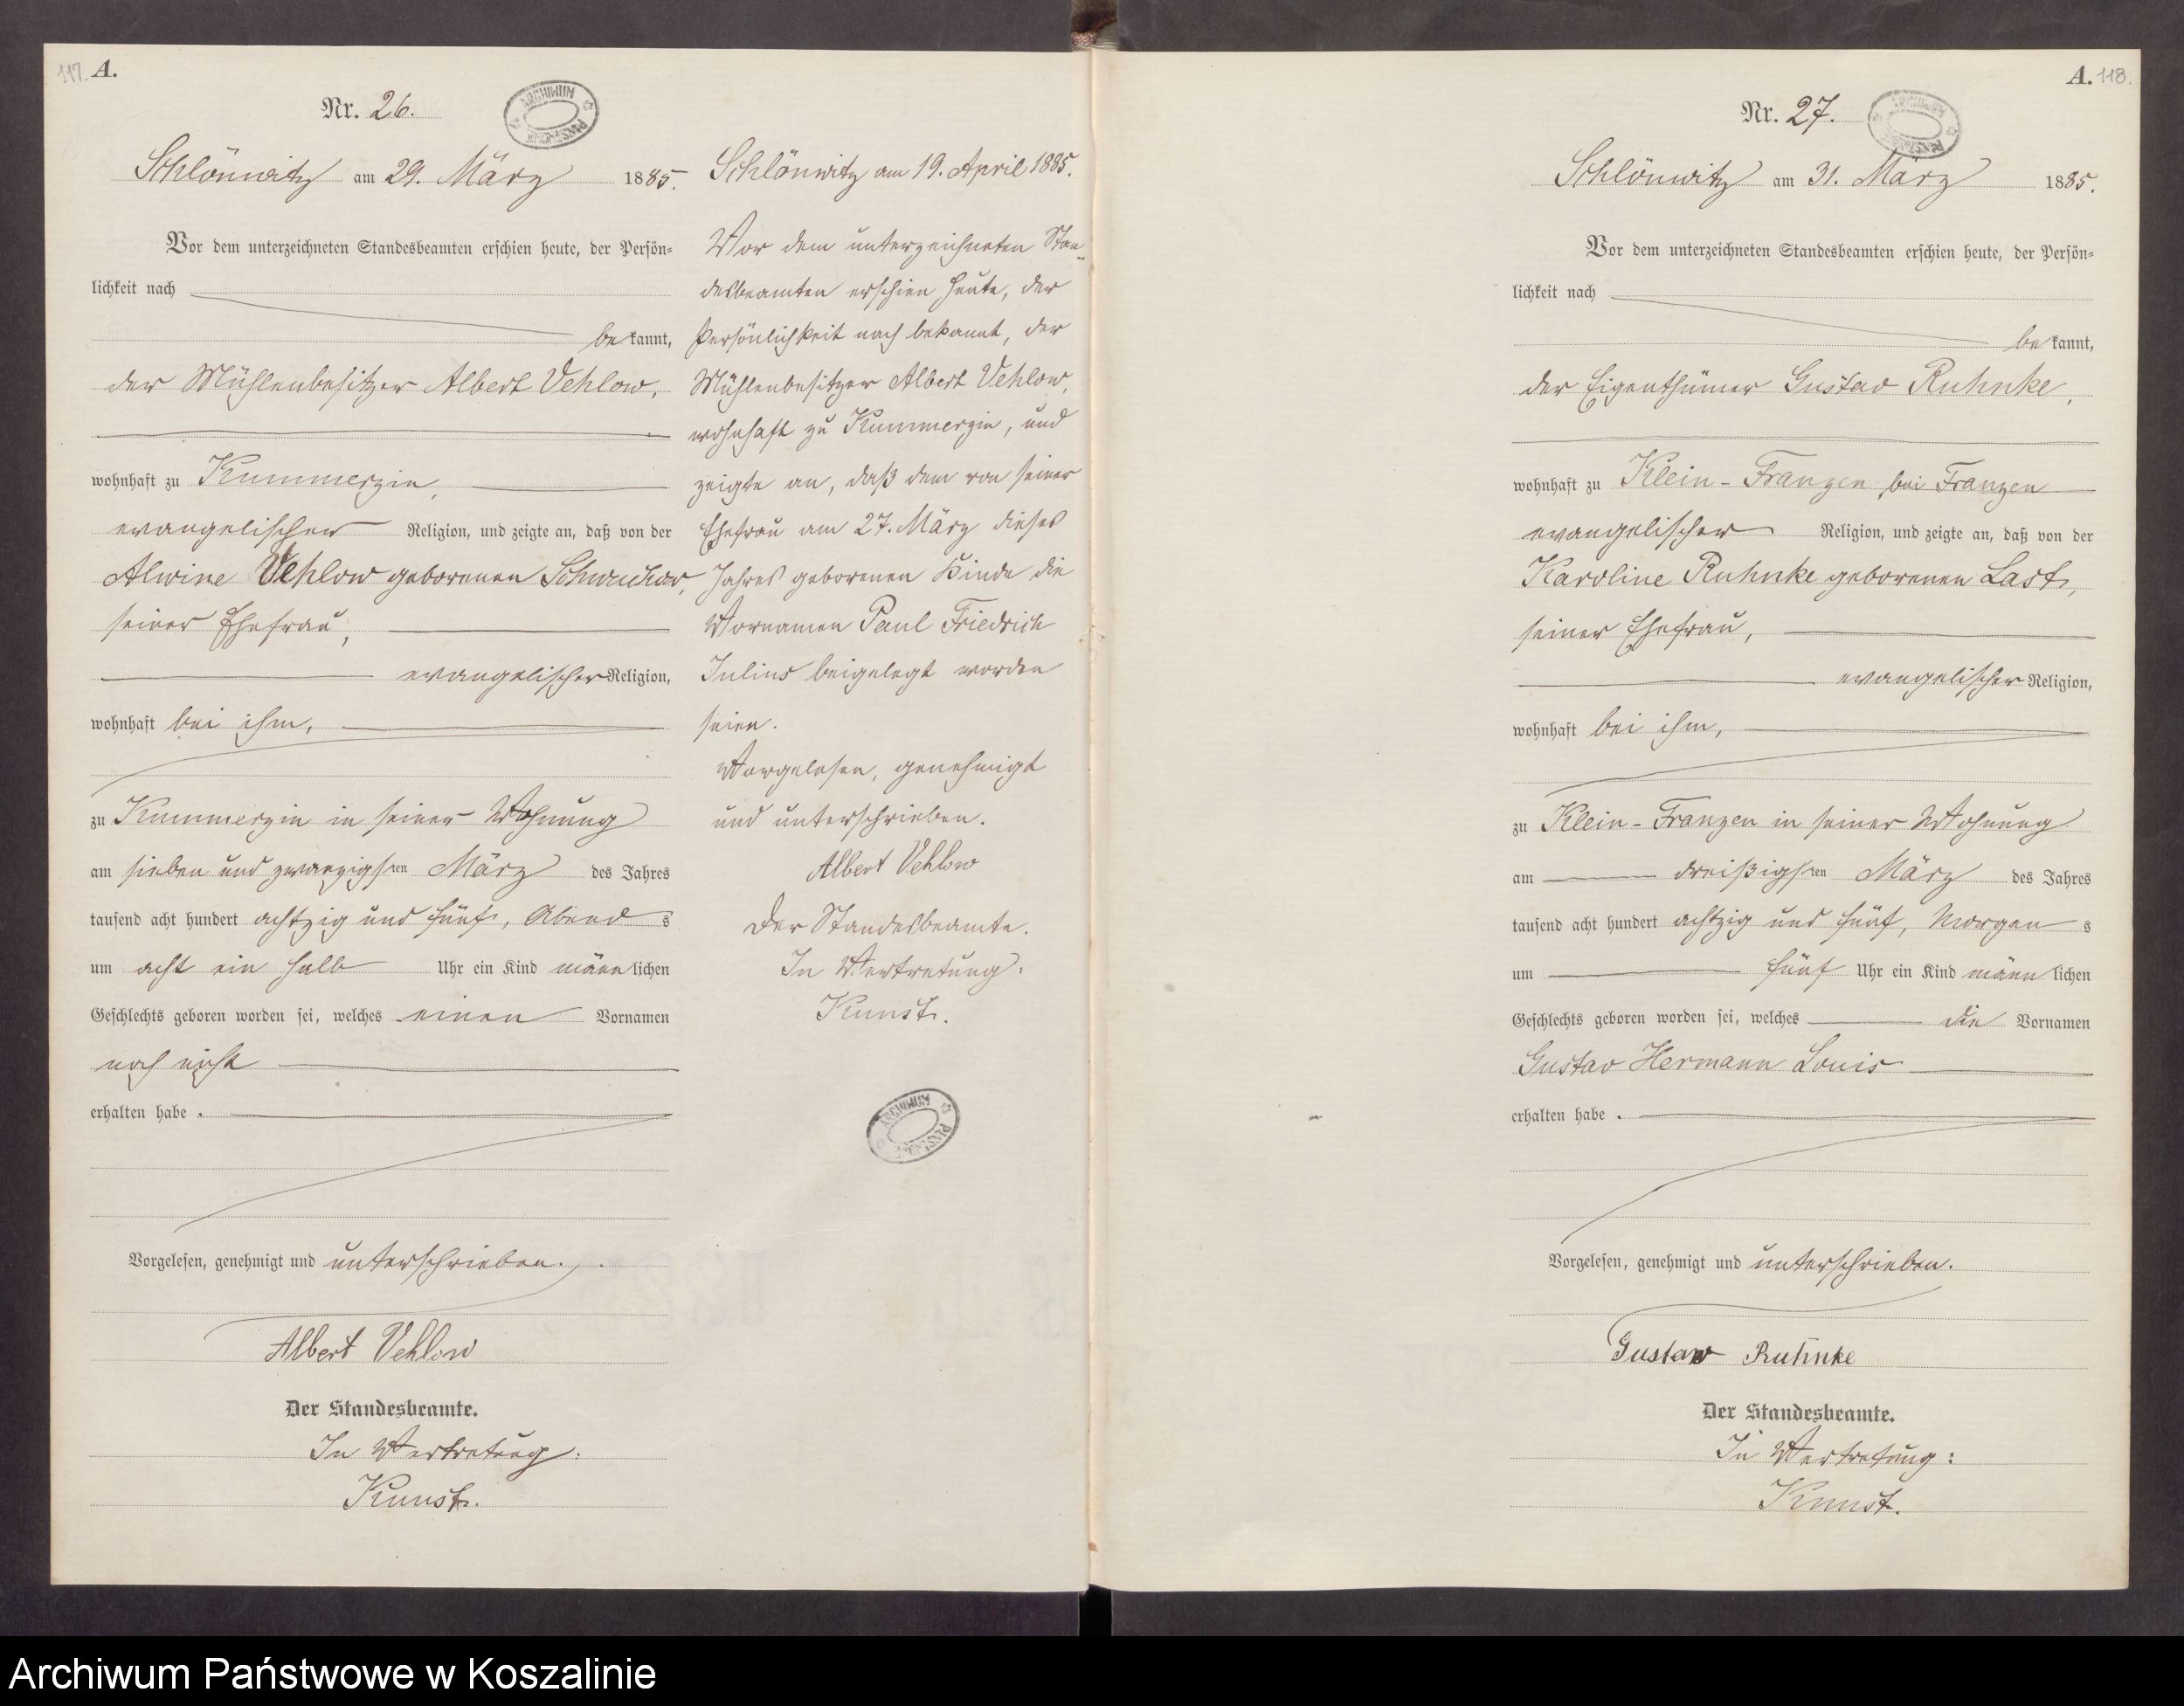 117. A.
Nr. 26.
ARCHIWUM
Schlönwitz am 29. März 1885.
Vor dem unterzeichneten Standesbeamten erschien heute, der Persön=
lichkeit nach
be kannt,
der Mühlenbesitzer Albert Vehlow,
wohnhaft zu Kummerzin,
evangelischer Religion, und zeigte an, daß von der
Alwine Vehlow geborenen
seiner Ehefrau,
evangelischer Religion,
wohnhaft bei ihm,
zu Kummerzin in seiner Wohnung
am sieben und zwanzigsten März des Jahres
tausend acht hundert achtzig und fünf, Abend s
um acht ein halb Uhr ein Kind männ lichen
Geschlechts geboren worden sei, welches einen Vornamen
noch nicht
erhalten habe.
Vorgelesen, genehmigt und unterschrieben.
Albert Vehlow
Der Standesbeamte.
In Vertretung:
Kunst.
Schlönwitz am 19. April 1885.
Vor dem unterzeichneten Stan=
desbeamten erschien heute, der
Persönlichkeit nach bekannt, der
Mühlenbesitzer Albert Vehlow,
wohnhaft zu Kummerzin, und
zeigte an, daß dem von seiner
Ehefrau am 27. März dieses
Jahres geborenen Kinde die
Vornamen Paul Friedrich
Julius beigelegt worden
seien.
Vorgelesen, genehmigt
und unterschrieben.
Albert Vehlow
Der Standesbeamte.
In Vertretung:
Kunst.
ARCHIWUM
A. 118.
Nr. 27.
ARCHIWUM
Schlönwitz am 31. März 1885.
Vor dem unterzeichneten Standesbeamten erschien heute, der Persön=
lichkeit nach
be kannt,
der Eigenthümer Gustav Ruhnke,
wohnhaft zu Klein-Franzen bei Franzen
evangelischer Religion, und zeigte an, daß von der
Karoline Ruhnke geborenen Last,
seiner Ehefrau,
evangelischer Religion,
wohnhaft bei ihm,
zu Klein-Franzen in seiner Wohnung
am dreißigsten März des Jahres
tausend acht hundert achtzig und fünf, Morgen s
um fünf Uhr ein Kind männ lichen
Geschlechts geboren worden sei, welches die Vornamen
Gustav Hermann Louis
erhalten habe.
Vorgelesen, genehmigt und unterschrieben.
Gustaw Ruhnke
Der Standesbeamte.
In Vertretung:
Kunst.
Archiwum Państwowe w Koszalinie